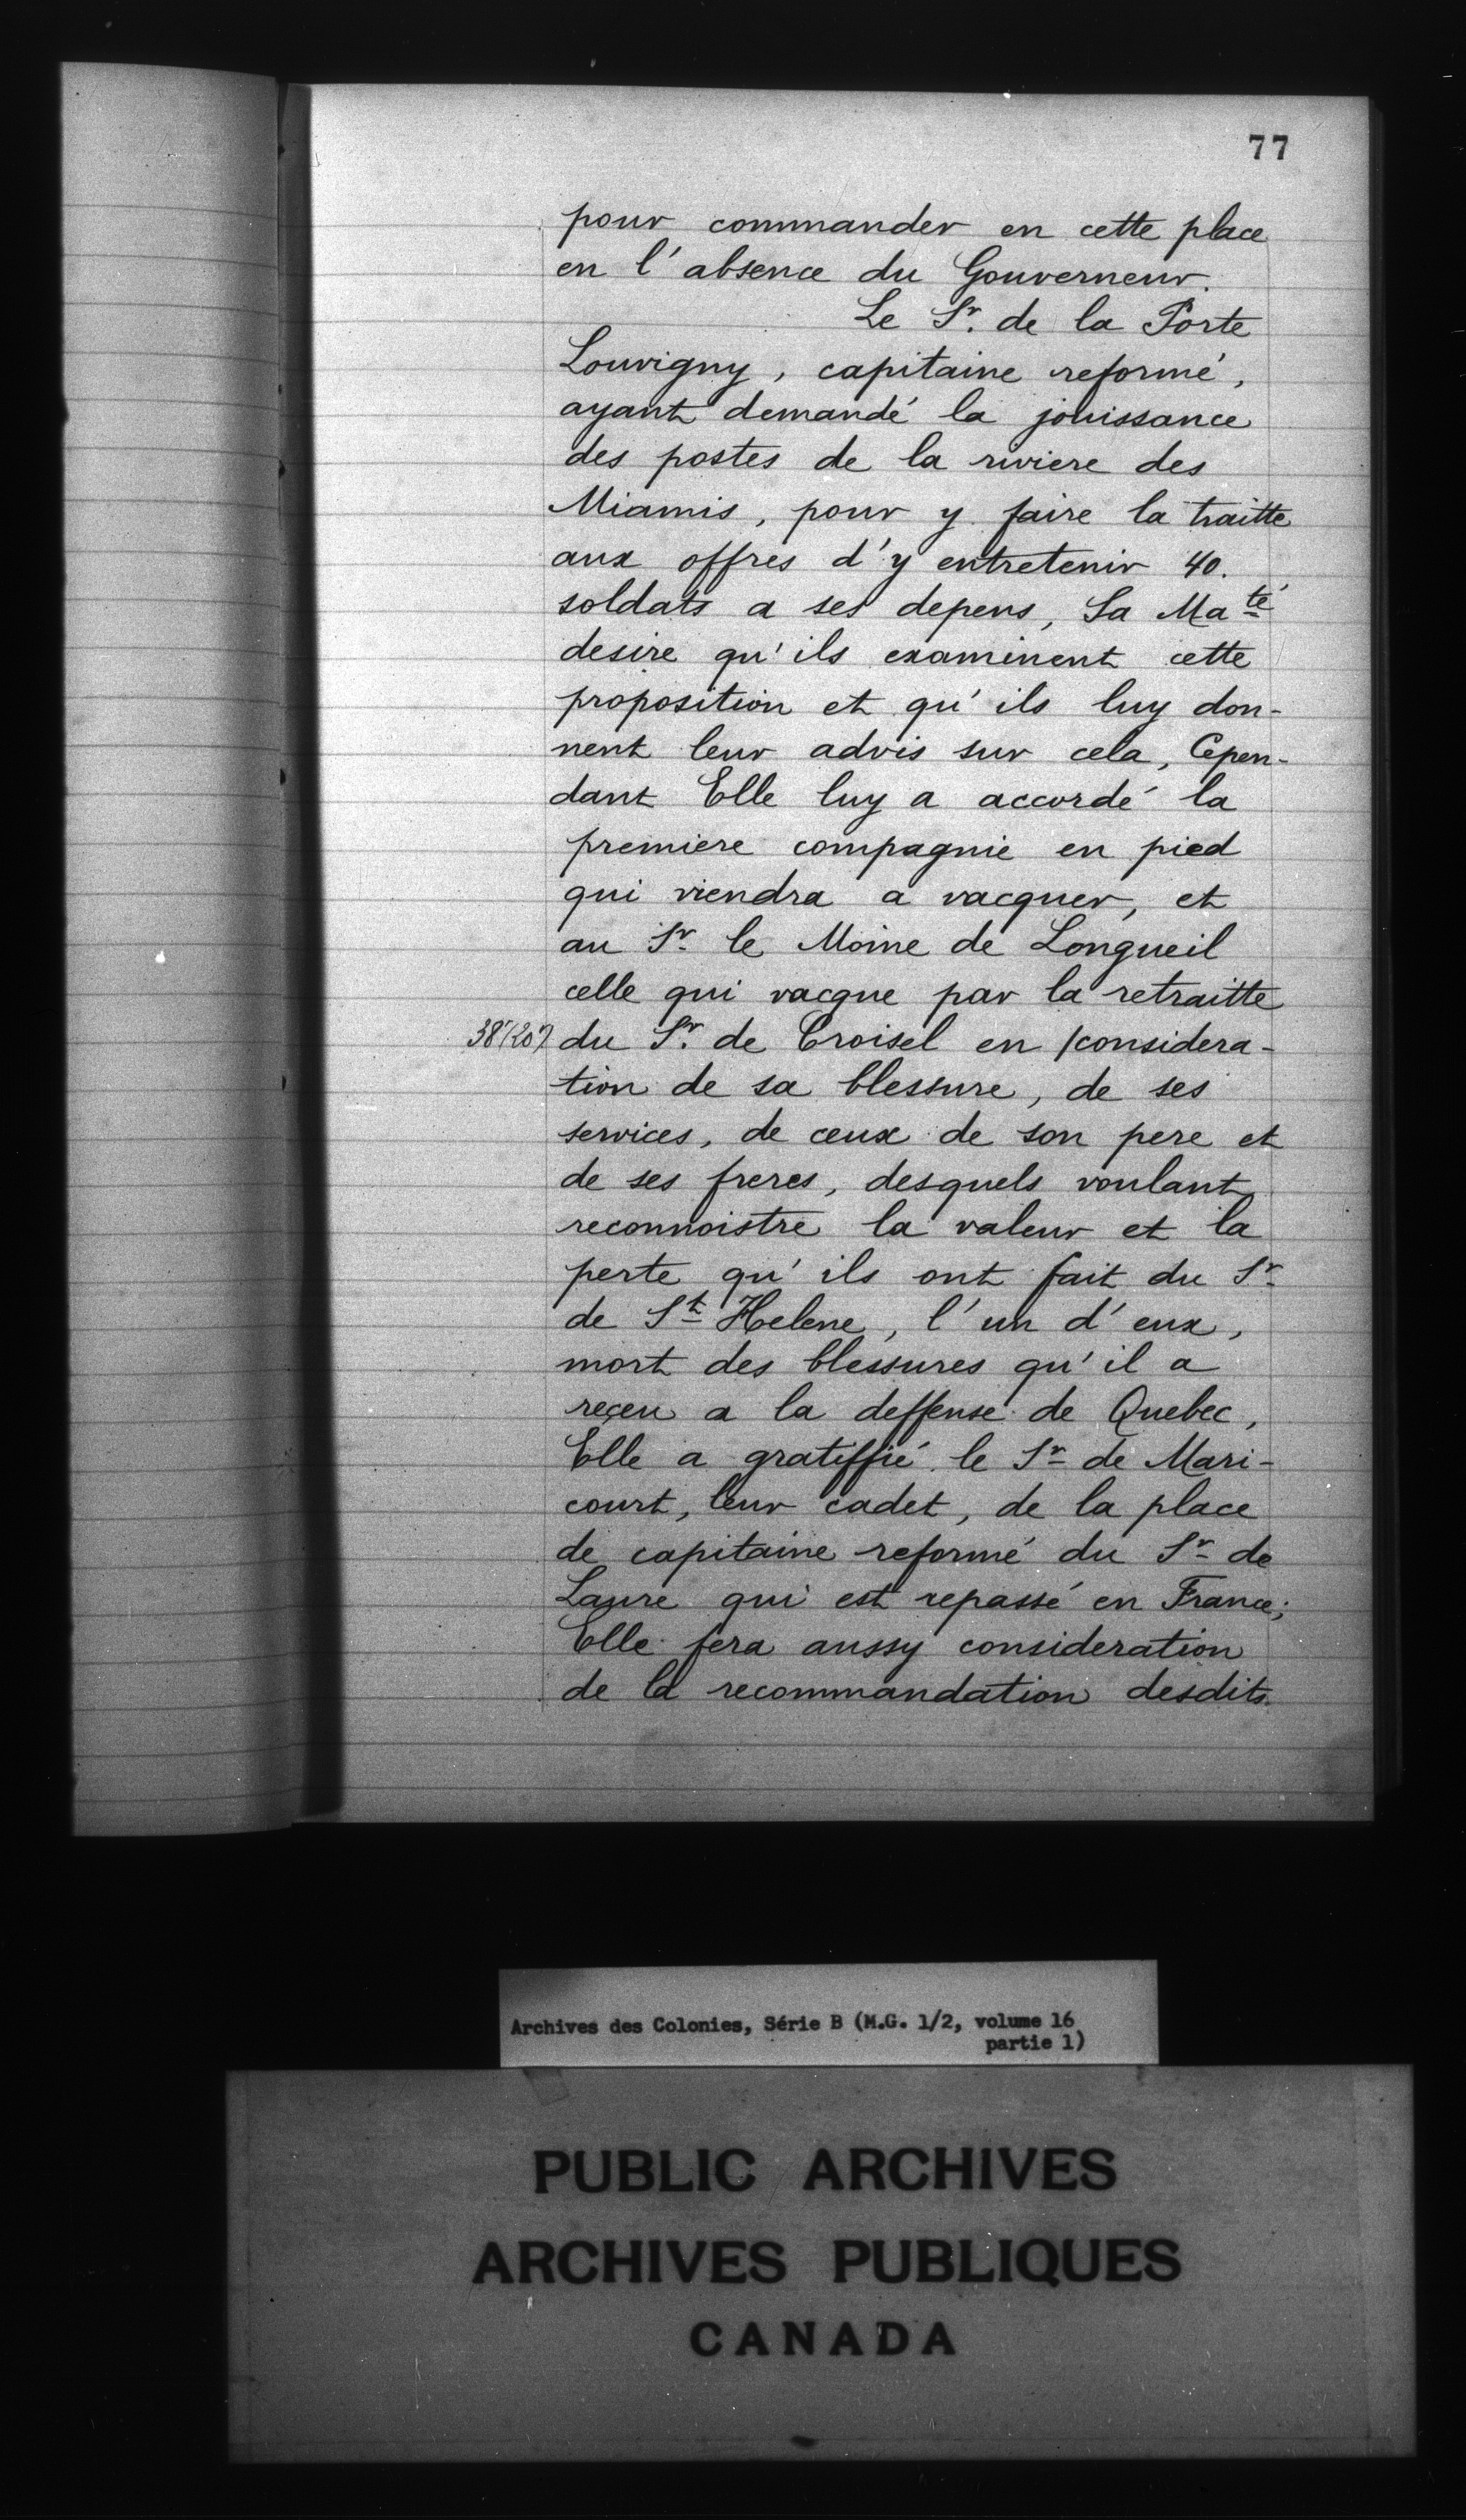 77
pour commander en cette place
en l'absence du Gouverneur.
Le Sr. de la Porte
Louvigny, capitaine reformé,
ayant demandé la jouissance
des postes de la riviere des
Miamis, pour y faire la traitte
aux offres d'y entretenir 40.
soldats a ses depens, Sa Maté
desire qu'ils examinent cette
proposition et qu'ils luy don-
nent leur advis sur cela, Cepen-
dant Elle luy a accordé la
premiere compagnie en pied
qui viendra a vacquer, et
au Sr le Moine de Longueil
celle qui vacque par la retraitte
du Sr. de Croisel en /considera-
tion de sa blessure, de ses
services, de ceux de son pere et
de ses freres, desquels voulant
reconnoistre la valeur et la
perte qu'ils ont fait du Sr
de St Helene, l'un d'eux,
mort des blessures qu'il a
reçeu a la deffense de Quebec,
Elle a gratiffié le Sr de Mari-
court, leur cadet, de la place
de capitaine reformé du Sr de
Laure qui est repassé en France;
Elle fera aussy consideration
de la recommandation desdits
Archives des Colonies, Série B (M.G. 1/2, volume 16
partie 1)
PUBLIC ARCHIVES
ARCHIVES PUBLIQUES
CANADA